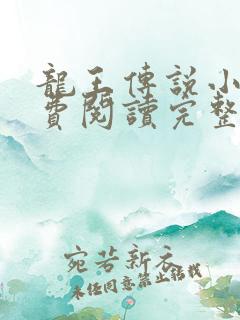 龍王傳說小
費閱讀完整
宛若新衣
未經同意禁止轉載